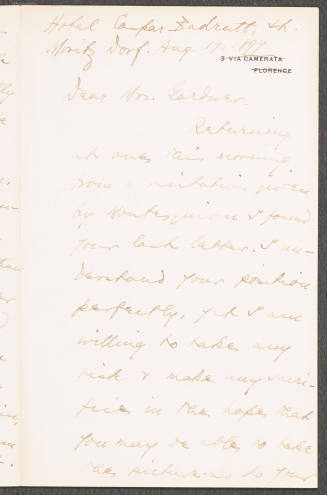 Hotel Caspar Badrutt, St.
Moritz Dorf. Aug. 19. 1897
3 VIA CAMERATA
FLORENCE
Dear Mrs. Gardner.
Returning
at one this morning
from a recitation given
by Montesquiou I found
your last letter. I un-
derstand your position
perfectly, yet I am
willing to take any
risk & make any sacri-
fice in the hope that
you may be able to take
the pictures. So your